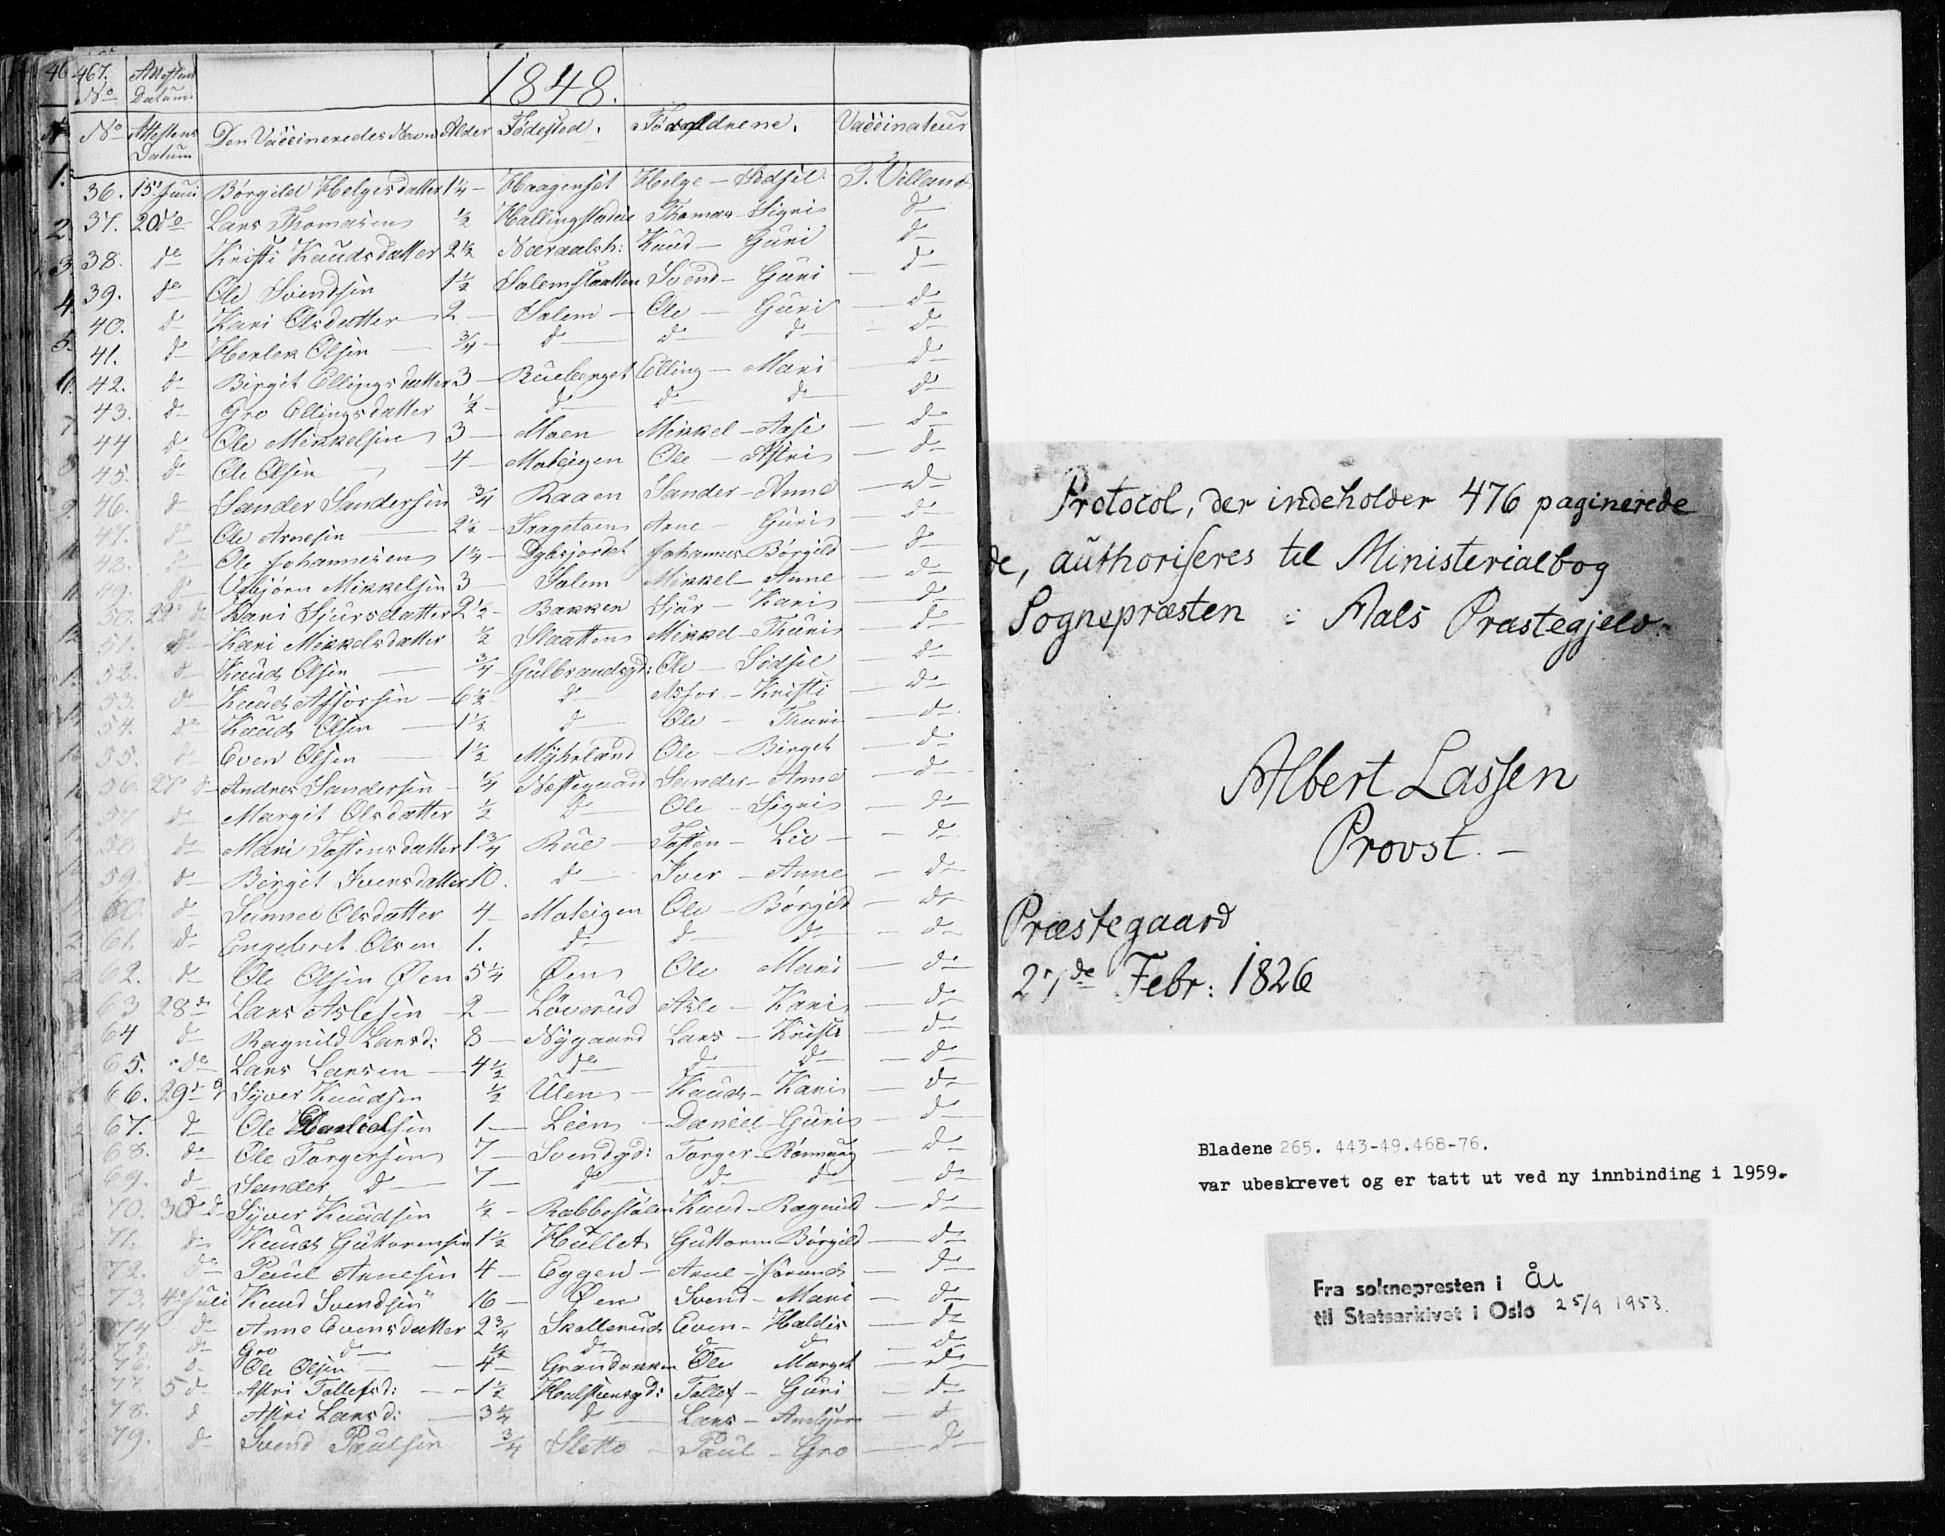 467.
Attestens Datum
1848.
No
Attestens Datum
Den Vaccineredes Navn
Alder
Fødested.
Forældrene.
Vaccinateur
36. 15 Juni Børgild Helgesdatter 1 1/4 - Haagenset Helge - Sidsel T. Villand
37. 20 do Lars Thomasen 1/2 Hallingstadeie Thomas - Sigri d-
38. do Kristi Knudsdatter 2 1/2 Knud - Guri d-
39. do Ole Svendsen 1 1/2 Salemslaatten Svend - Guri - d-
40. d- Kari Olsdatter - 2 - Salem - Ole - Guri - d-
41. d- Herlek Olsen - 3/4 - d- d- d- - d-
42. d- Birgit Ellingsdatter 3 - Rueberget Elling - Mari - d-
43. d- Gro Ellingsdatter 1/2 - d- d- d- - d-
44 d- Ole Mikkelsen 3 - Moen Mikkel - Aase - d-
45. d- Ole Olsen - 4 - Moteigen Ole - Astri - d-
46. d Sander Sandersen 3/4 Raaen Sander - Anne - d-
47. d- Ole Arnesen - 2 1/2 - Arne - Guri - d-
48. d- Ole Johannesen 1 1/4 - Dybsjordet Johannes Børgild - d-
49. d- Mikkelsen 3 - Salem Mikkel - Anne - d-
50. 22 d- Kari Sjursdatter 2 1/2 - Bakken Sjur - Kari - d-
51. d- Kari Mikkelsdatter 1/2 Slaatten Mikkel - Thuri - d-
52. d- Knud Olsen - 3/4 - Gulbrandsgd: Ole - Sidsel - d-
53. d- Knud Assorsen - 6 1/2 - d- Assor - Kristi - d-
54. do Knud Olsen - 1 1/2 d- Ole - Thuri - d-
55. d- Even Olsen - 1 1/2 Myhrland Ole - Birget - d-
56. 27 d- Andres Sandersen - 1/4 Nessegaard Sander - Anne - d-
d- Margit Olsdatter 1/2 d- Ole - Sigri - d-
d- Mari Tostensdatter 1 3/4 Rue - Tosten - Liv - - d-
59. d- Birgit Iversdatter 10. d- Iver - Anne - d-
60. d- Sunnev Olsdatter 4 - Moteigen Ole - Børgild - d-
61. d- Engebret Olsen 1. d- d- d- - d-
62. d- Ole Olsen Øen 5 1/4 Øen Ole Mari - d-
63 28 do Lars Aslesen - 2 - Løverud Asle - Kari - d-
64 d- Ragnild Larsd: 8 - Nygaard Lars - Kristi - d-
65. do Lars Larsen - 4 1/2 do d- d- - d-
66. 29 d Syver Knudsen 1/2 Ulen - Knud - Kari - d-
67. d- Ole 1 - Lien - Daniel - Guri - d-
68. do Ole Torgersen 7 - Svendgd: Torger - Rønnaug - d-
69. d- Sander d- 7 - d- d- d- - d-
70. 30 d- Syver Knudsen 1/2 - Rabbestølen Knud - Ragnild - d-
71. d- Knud Guttormsen 1 1/2 Hullet Guttorm Børgild - d-
72. do Paul Arnesen 4 - Eggen - Arne - Jørand - d-
73. 4 Juli Knud Svendsen 16 - Øen Svend - Mari - d-
74 d- Anne Evensdatter 2 3/4 Skollerud Even - Haldis - d-
75. d- Gro d- 1/2 d- d- d - d-
76. d- Ole Olsen - 4 - Grøndokken Ole Marget - d-
77. 5 d- Astri Tollefsd: - 1 1/2 Halstensgd: Tollef - Guri - d-
78. d Astri Larsd: - 3 1/4 d- Lars - - d
79. d- Svend Paulsen 3/4 Sletto - Paul - Gro - d-
Protocol, der indeholder 476 paginerede
de, authoriseres til Ministerialbog
Sognepræsten i Aals Præstegjeld.
Albert Lassen
Provst. -
Præstegaard
27de Febr: 1826
Bladene 265. 443-49.468-76.
var ubeskrevet og er tatt ut ved ny innbinding i 1959.
Fra soknepresten i Ål
til Statsarkivet i Oslo 25/9 1953.